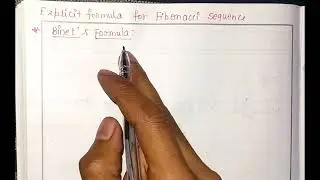 Explicit formula for Fibonacci sequence
* Binet's Formula: